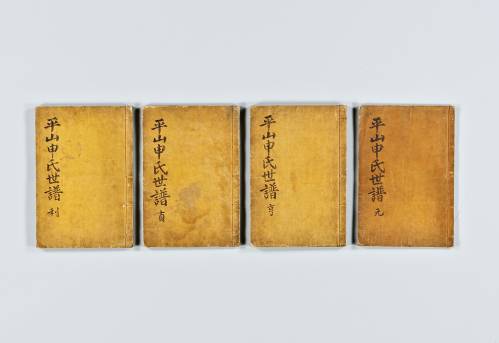 平山申氏世譜 利
平山申氏世譜 貞
平山申氏世譜 亨
平山申氏世譜 元